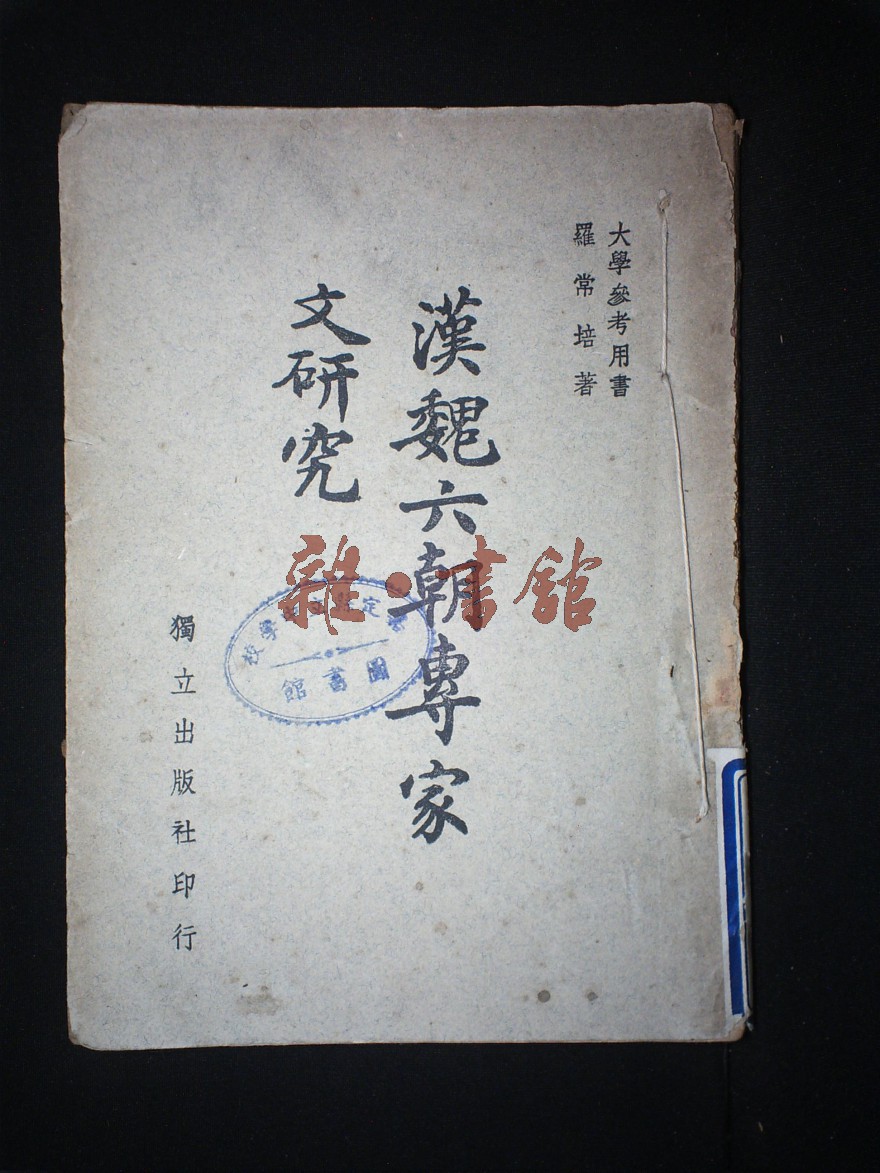 大學參考用書
羅常培著
漢魏六朝專家
文研究
獨立出版社印行
雜·書館
圖書館